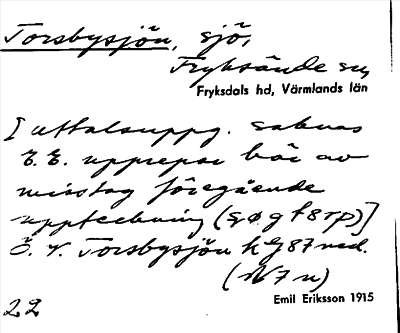 Torsbysjön, sjö,
Fryksände sn,
Fryksdals hd, Värmlands län
[uttalsuppg. saknas
E.E. upprepar här av
misstag föregående
uppteckning
Ö. V. Torsbysjön
Emil Eriksson 1915
22